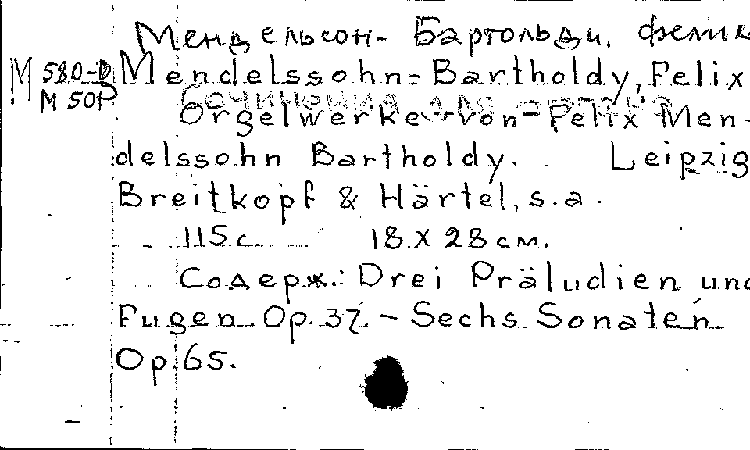 Мендельсон- Бартольди, Фелик
M 580-D Mendelssohn-Bartholdy, Felix
M 501
Сочинения для органа
Orgelwerke von Felix Men-
delssohn Bartholdy. Leipzig
Breitkopf & Härtel, s.a.
115 с 18 X 28 см.
Содерж.: Drei Präludien und
Fugen Op. 37. - Sechs Sonaten
Op. 65.